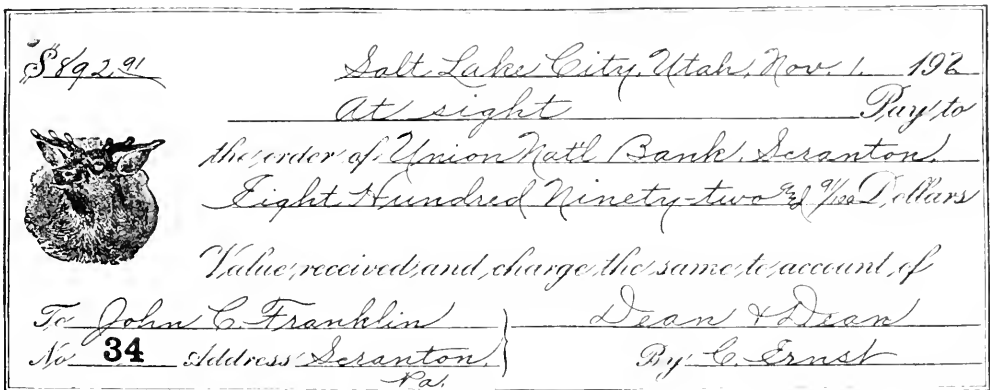 $892.91 Salt Lake City, Utah, Nov. 1. 192
At sight Pay to
the order of Union Nat'l Bank, Scranton.
Eight Hundred Ninety-two and 91/100 Dollars
Value received and charge the same to account of
To John C. Franklin Dean & Dean
No 34 Address Scranton, By C. Ernst
Pa.